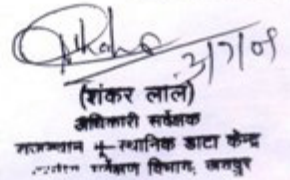 3/7/09
(शंकर लाल)
अधिकारी सर्वेक्षक
राजस्थान भू-स्थानिक डाटा केन्द्र
भारतीय सर्वेक्षण विभाग, जयपुर